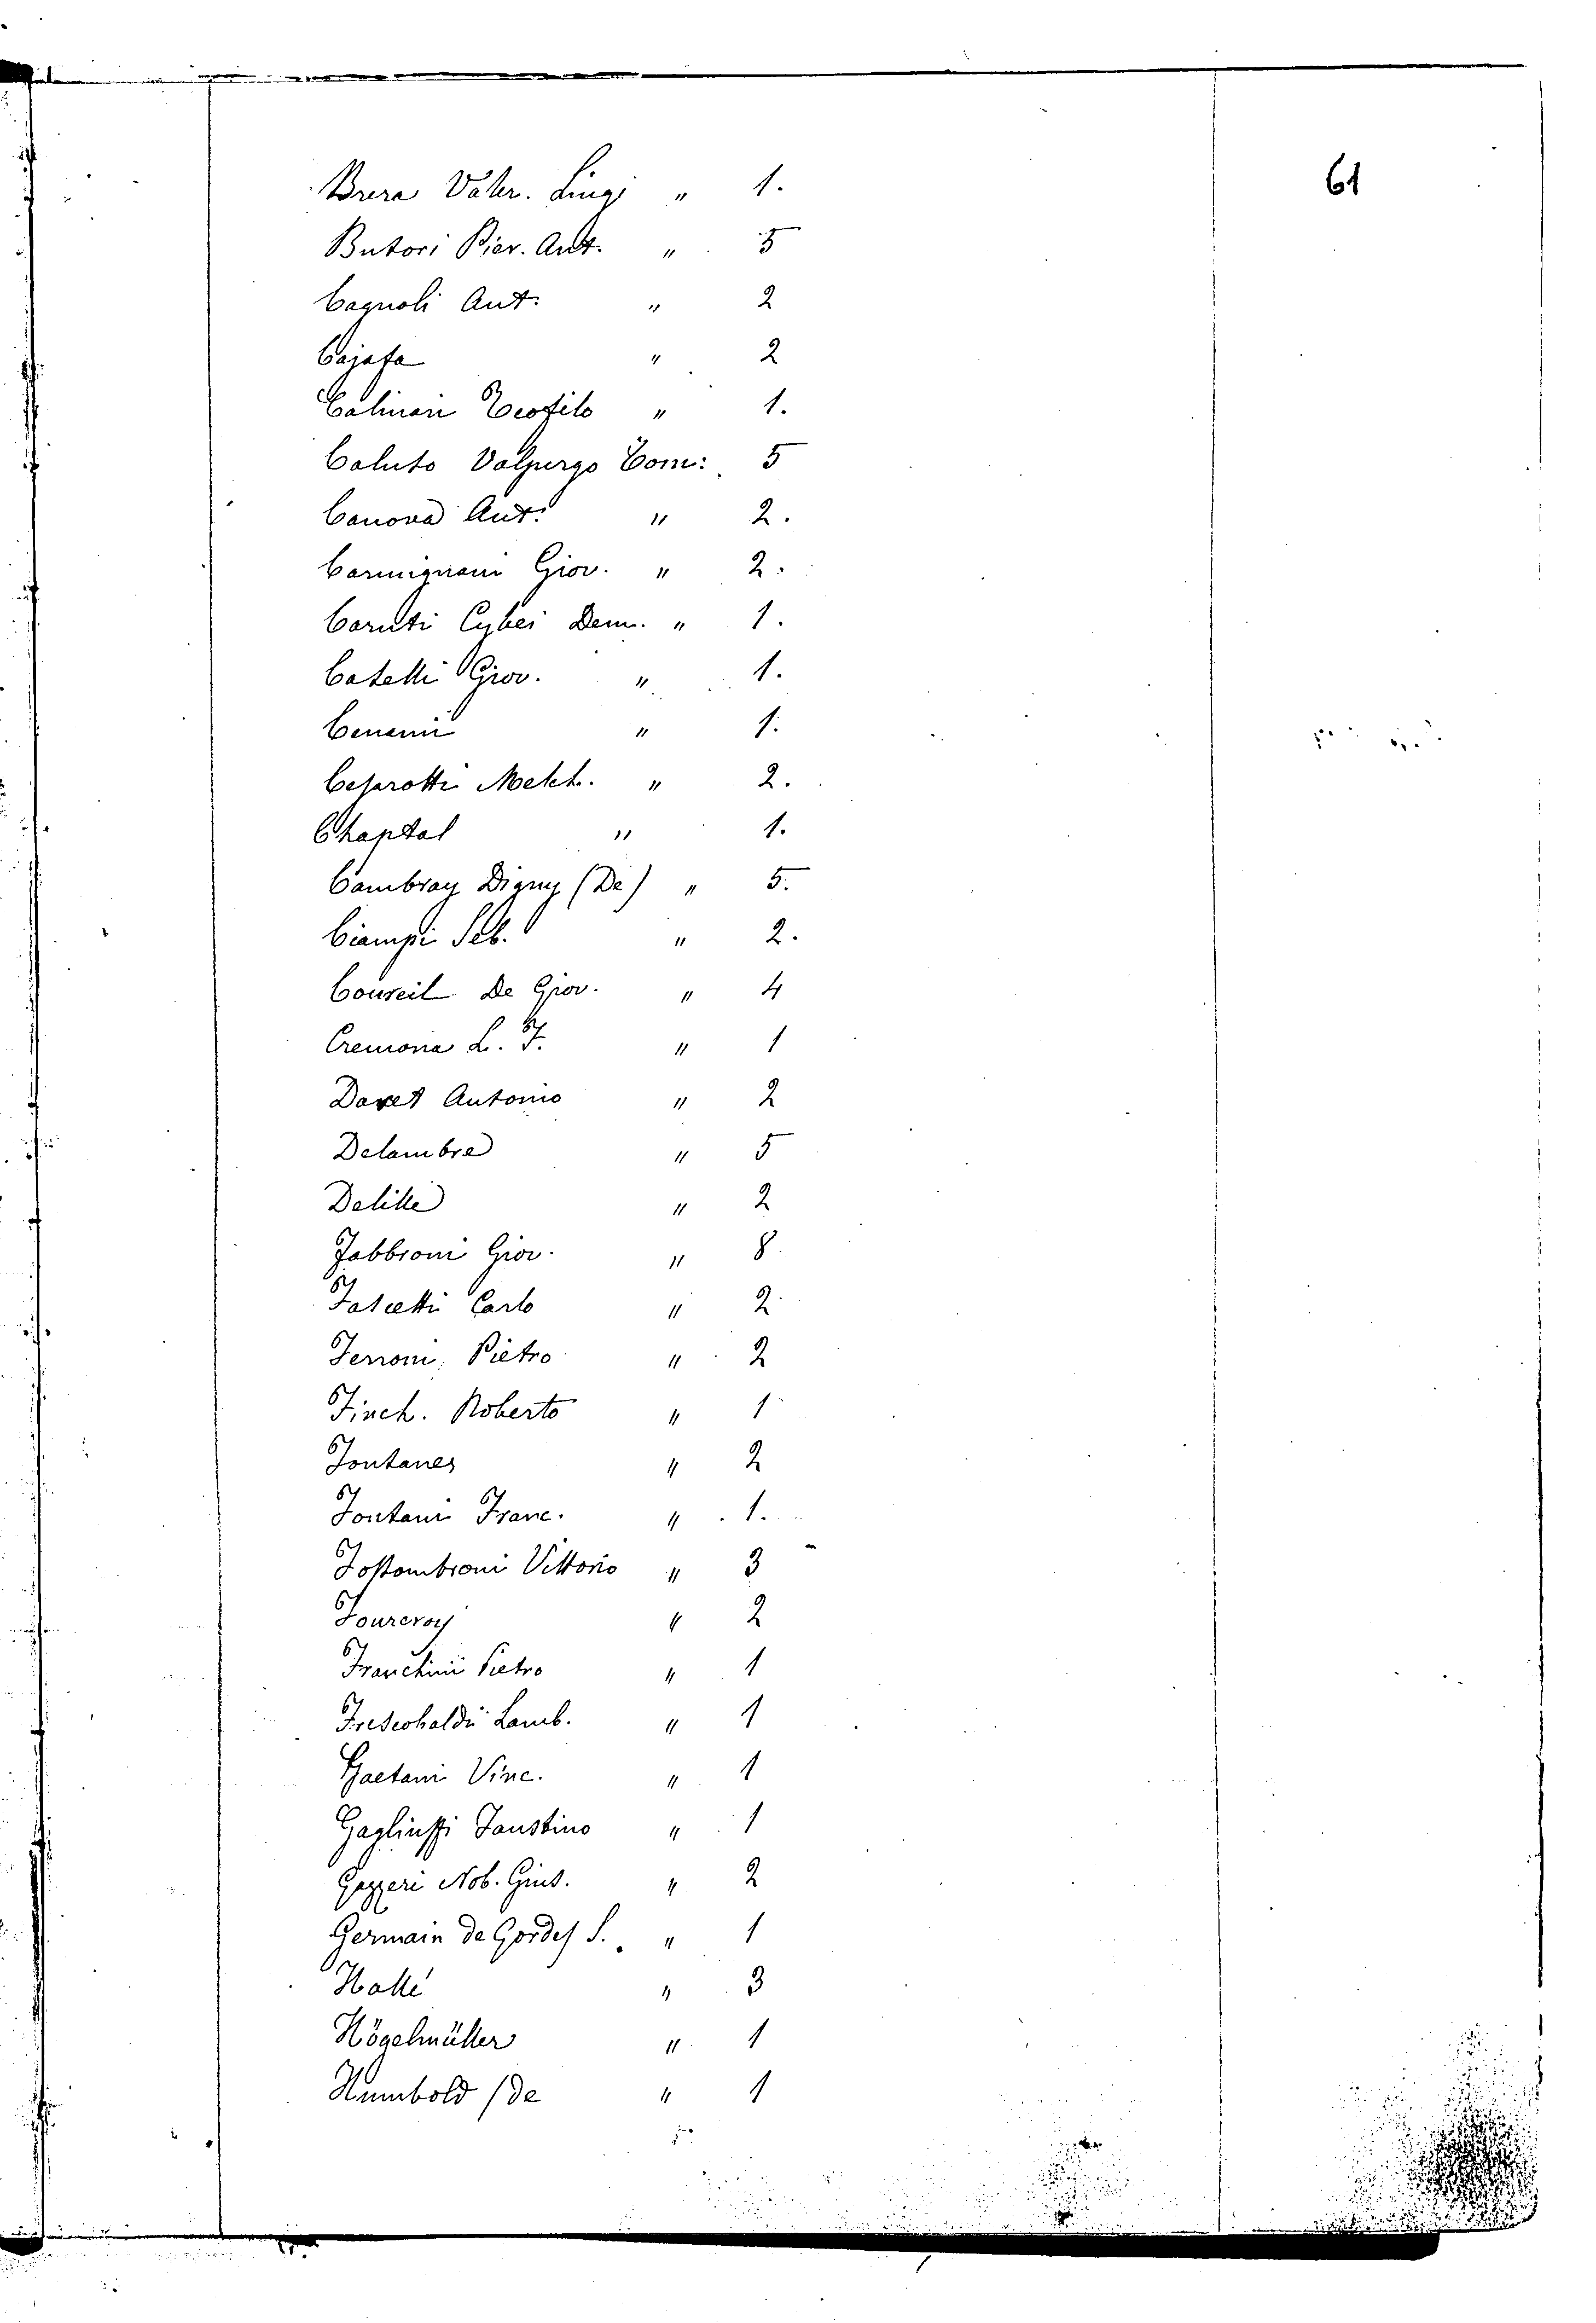 61
Brera Valer. Luigi " 1.
Butori Pier. Ant. " 5
Cagnoli Ant. " 2
Cajafa " 2
Calinari Teofilo " 1.
Caluso Valpergo Tom: 5
Canova Ant. " 2.
Carmignani Giov. " 2.
Caruti Cybei Dem. " 1.
Catelli Giov. " 1.
Cenami " 1.
Cesarotti Melch. " 2.
Chaptal " 1.
Cambray Digny (De) " 5.
Ciampi Seb. " 2.
Conseil De Giov. " 4
Cremona L. F. " 1
Davet Antonio " 2
Delambre " 5
Delille " 2
Fabbroni Giov. " 8.
Fascetti Carlo " 2
Ferroni, Pietro " 2
Finch. Roberto " 1
Fontanes " 2
Fontani Franc. " 1.
Fossombroni Vittorio " 3
Fourcroy " 2
Franchini Pietro " 1
Frescobaldi Lamb. " 1
Gaetani Vinc. " 1
Gagliuffi Faustino " 1
Gazzeri Nob. Gius. " 2
Germain de Gordes S. " 1
Hallé " 3
Högelmüller " 1
Humbold (de " 1